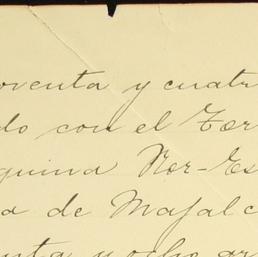 oventa y cuatr
do con el Ter
quina Nor-Es
a de Mafalc
enta y ocho ar